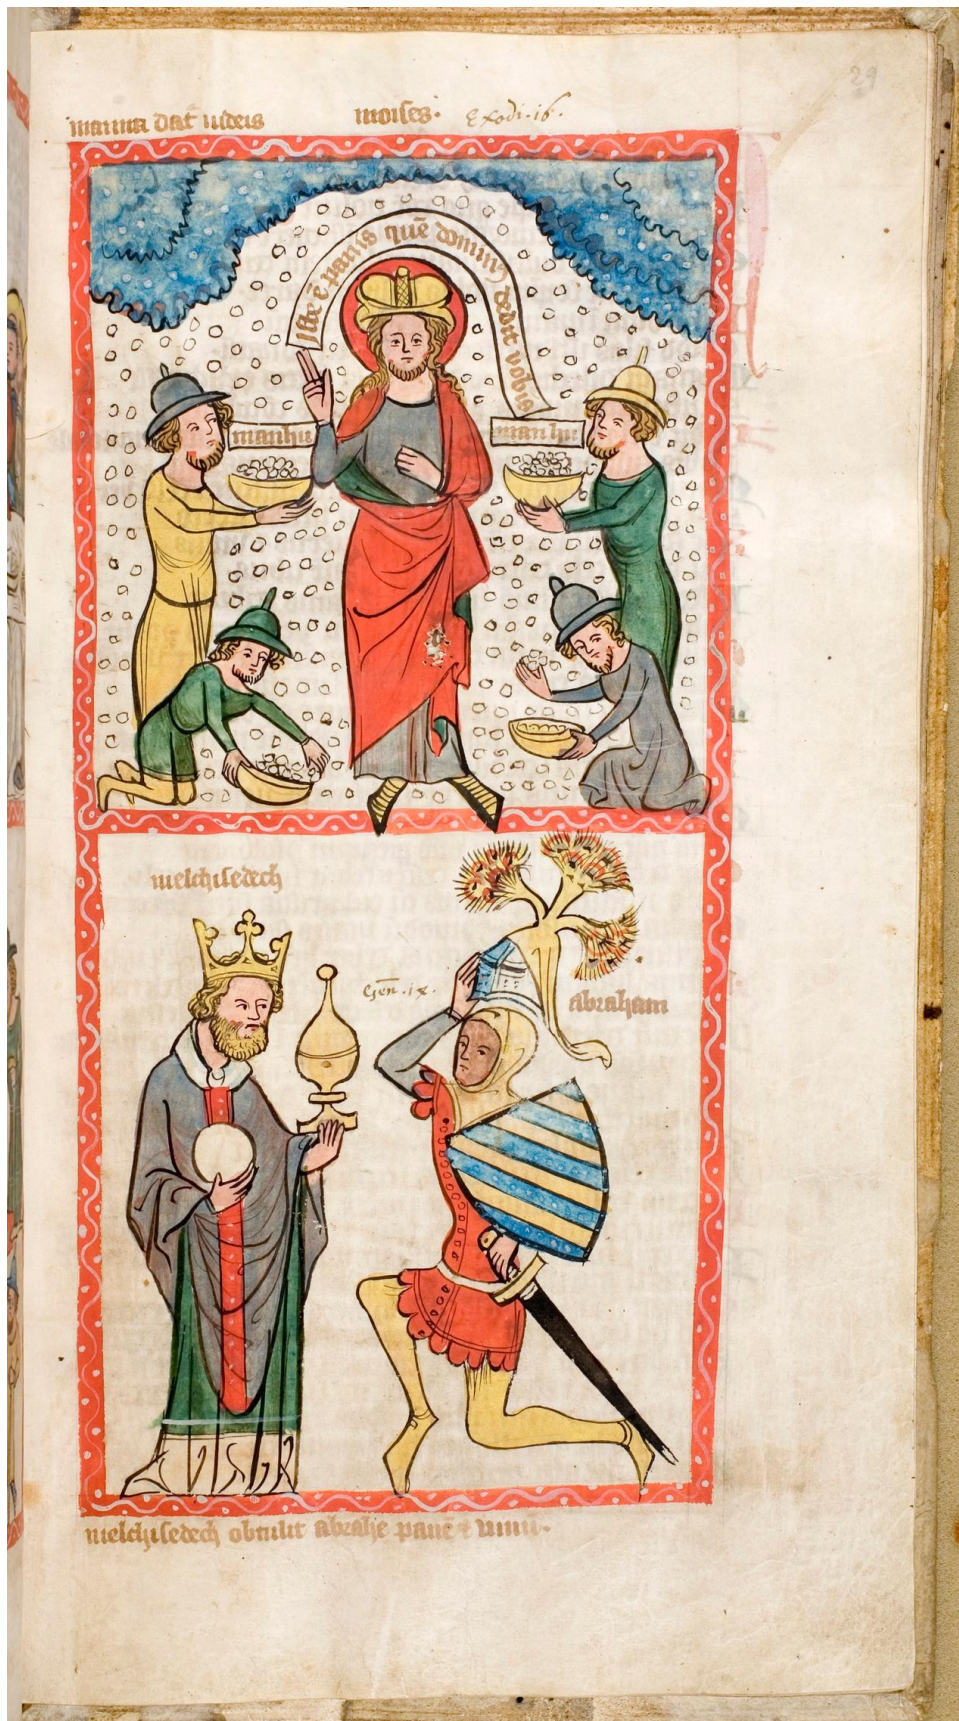 manna dat᷑ iudeis moises. Exodi .16.
Iste ē panis quē dominꝰ dedit vobis
manhu manhu
melchisedech
Gen̄ .ix.
abraham
melchisedech obtulit abrahe panē ⁊ uinū.
29